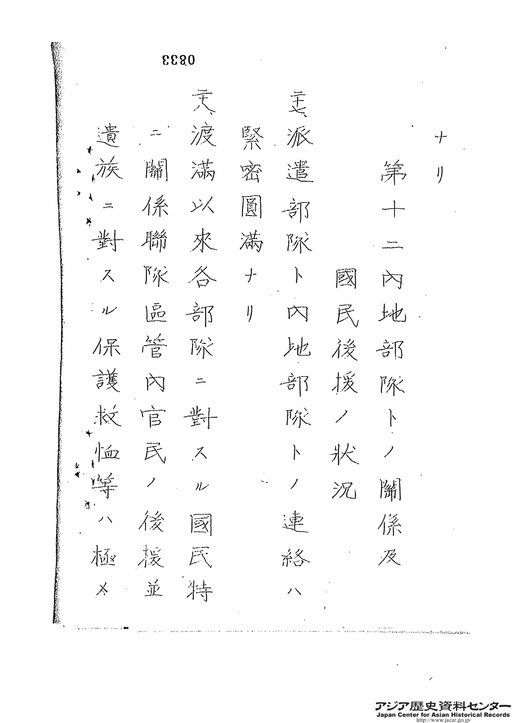 0833
ナリ
第十二內地部隊トノ關係及
國民後援ノ狀況
派遣部隊ト內地部隊トノ連絡ハ
緊密圓滿ナリ
渡滿以來各部隊ニ對スル國民特
ニ關係聯隊區管內官民ノ後援並
遺族ニ對スル保護救恤等ハ極メ
アジア歴史資料センター
Japan Center for Asian Historical Records
http://www.jacar.go.jp/